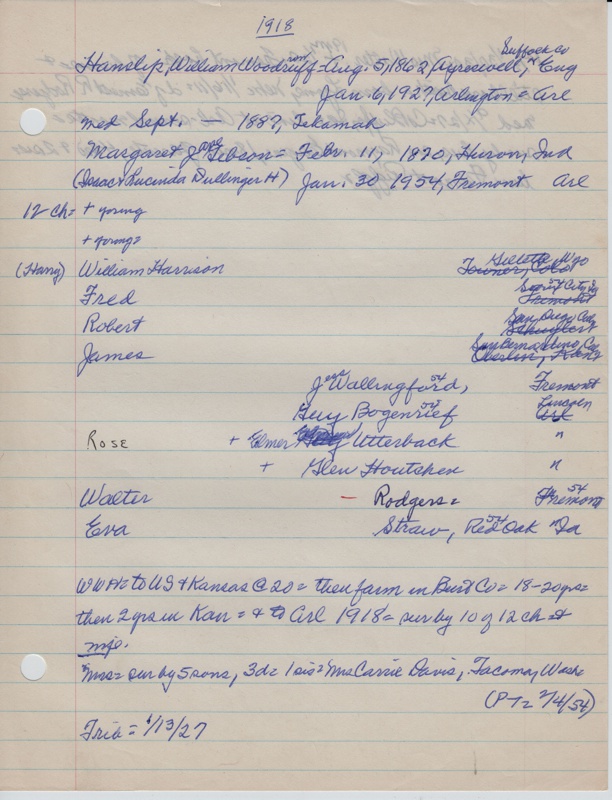 1918
Hanslip, William Woodruff - Aug. 5, 1862, Suffock co, Eng
Jan. 6, 1927, Arlington = Arl
med Sept. — 1887, Tekamah
Margaret Jane Gibson = Febr. 11, 1870, Huron, Ind
(Isaac & Lucinda Dullinger H) Jan. 30 1954, Fremont Arl
12 ch = + young
+ young =
(Harry) William Harrison Gillette, Wyo
Fred Fremont
Robert San Diego
James San Bernardino, Oberlin, Kans
J Wallingford, 54 Fremont
Guy Bogenrief 54 Lincoln Arl
Rose + Elmer Utterback "
+ Glen Houtchen "
Walter — Rodgers = 54 Fremont
Eva Straw, 54 Red Oak Ia
WWH = to US & Kansas @ 20 = then farm in Burt Co = 18-20 yrs =
then 2 yrs in Kan = & to Arl 1918 = sur by 10 of 12 ch =
Mrs = sur by 5 sons, 3d = 1 sis = Mrs Carrie Davis, Tacoma, Wash
(P-T = 2/4/54)
Trib = 1/13/27